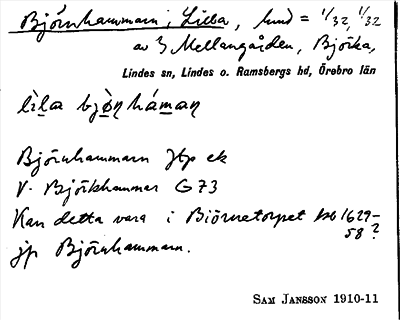 Björnhammarn, Lilla, hmd = 1/32, 1/32
av 3 Mellangården, Björka,
Lindes sn, Lindes o. Ramsbergs hd, Örebro län
lìla bjòn̥háman̥
Björnhammarn Jbp ek
V. Björkhammar G 73
Kan detta vara i Biörnetorpet kb 1629-
58?
jp Björnhammarn.
SAM JANSSON 1910-11